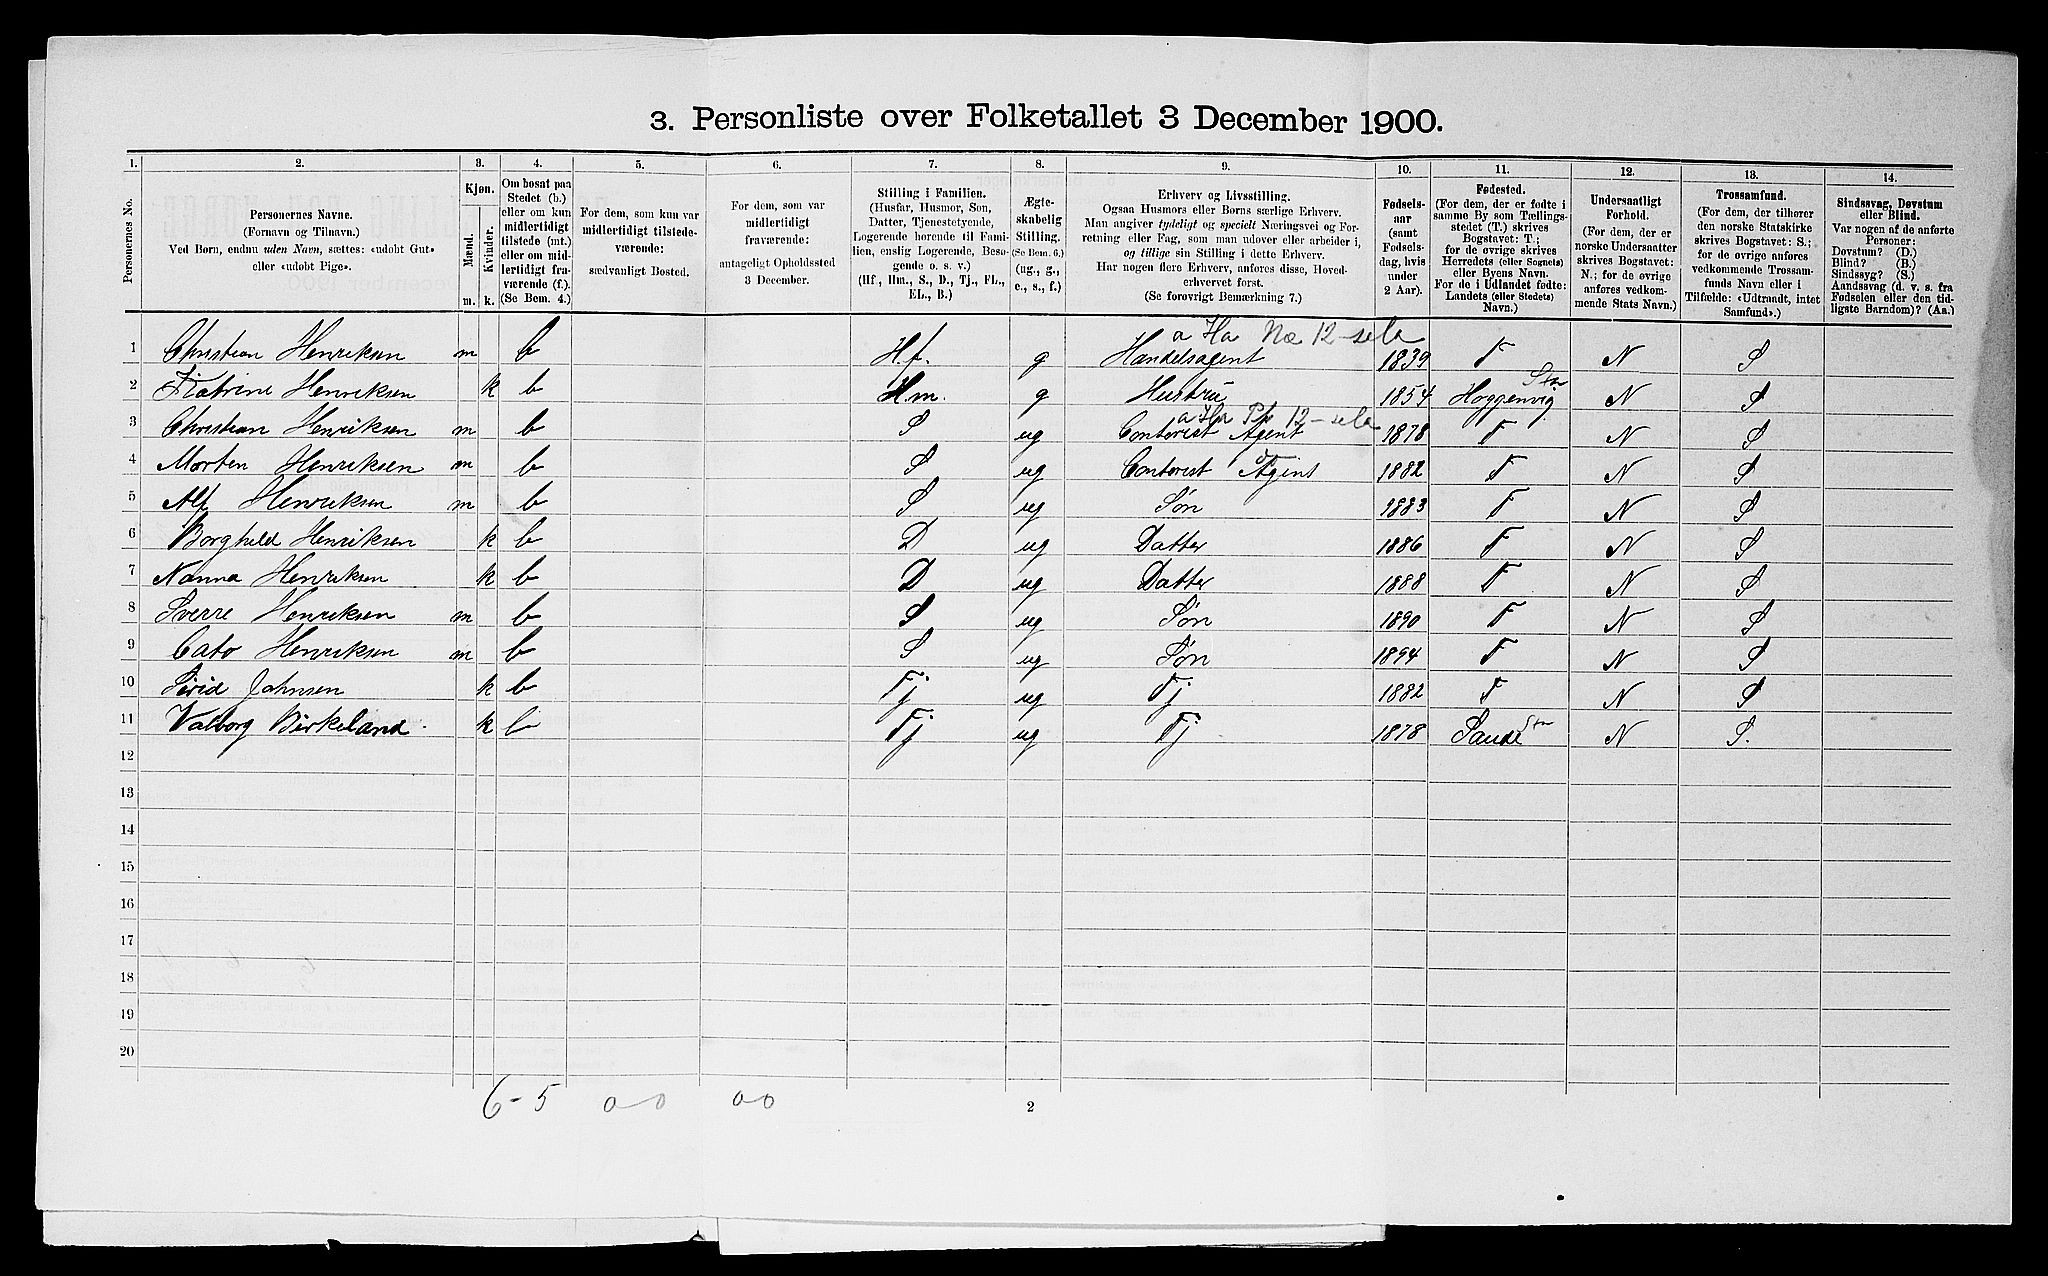 3. Personliste over Folketallet 3 December 1900.
1. 2. 3. 4. 5. 6. 7. 8. 9. 10. 11. 12. 13. 14.
Personernes No.
Personernes Navne.
(Fornavn og Tilnavn.)
Ved Børn, endnu uden Navn, sættes: «udøbt Gut»
eller «udøbt Pige».
Kjøn.
Mænd.
Kvinder.
m. k.
Om bosat paa
Stedet (b.)
eller om kun
midlertidigt
tilstede (mt.)
eller om mid-
lertidigt fra-
værende (f.).
(Se Bem. 4.)
For dem, som kun var
midlertidigt tilstede-
værende:
sædvanligt Bosted.
For dem, som var
midlertidigt
fraværende:
antageligt Opholdssted
3 December.
Stilling i Familien.
(Husfar, Husmor, Søn,
Datter, Tjenestetyende,
Logerende hørende til Fami-
lien, enslig Logerende, Besø-
gende o. s. v.)
(Hf., Hm., S., D., Tj., FL.,
EL., B.)
Ægte-
skabelig
Stilling.
(Se Bem. 6.)
(ug., g.,
e., s., f.)
Erhverv og Livsstilling.
Ogsaa Husmors eller Børns særlige Erhverv.
Man angiver tydeligt og specielt Næringsvei og For-
retning eller Fag, som man udøver eller arbeider i,
og tillige sin Stilling i dette Erhverv.
Har nogen flere Erhverv, anføres disse, Hoved-
erhvervet først.
(Se forøvrigt Bemærkning 7.)
Fødsels-
aar
(samt
Fødsels-
dag, hvis
under
2 Aar).
Fødested.
(For dem, der er fødte i
samme By som Tællings-
stedet (T.) skrives
Bogstavet: T.;
for de øvrige skrives
Herredets (eller Sognets)
eller Byens Navn.
For de i Udlandet fødte:
Landets (eller Stedets)
Navn.)
Undersaatligt
Forhold.
(For dem, der er
norske Undersaatter
skrives Bogstavet:
N.; for de øvrige
anføres vedkom-
mende Stats Navn.)
Trossamfund.
(For dem, der tilhører
den norske Statskirke
skrives Bogstavet: S.;
for de øvrige anføres
vedkommende Trossam-
funds Navn eller i
Tilfælde: «Udtraadt, intet
Samfund».)
Sindssvag, Døvstum
eller Blind.
Var nogen af de anførte
Personer:
Døvstum? (D.)
Blind? (B.)
Sindssyg? (S.)
Aandssvag (d. v. s. fra
Fødselen eller den tid-
ligste Barndom)? (Aa.)
a Ha Næ 12-sela
1 Christian Henriksen m b Hf. g Handelsagent 1839 T N S
2 Katrine Henriksen k b Hm. g Hustru 1854 Høggenvig N S
3 Christian Henriksen m b S ug Contorist Agent 1878 T N S
4 Morten Henriksen m b S ug Contorist Agent 1882 T N S
5 Alf Henriksen m b S ug Søn 1883 T N S
6 Borghild Henriksen k b D ug Datter 1886 T N S
7 Nanna Henriksen k b D ug Datter 1888 T N S
8 Sverre Henriksen m b S ug Søn 1890 T N S
9 Cato Henriksen m b S ug Søn 1894 T N S
10 Sirid Johnsen k b Tj ug Tj 1882 T N S
11 Valborg Birkeland. k b Tj ug Tj 1878 Sande N S.
12
13
14
15
16
17
18
19
20
6-5 0 0 0 0 2